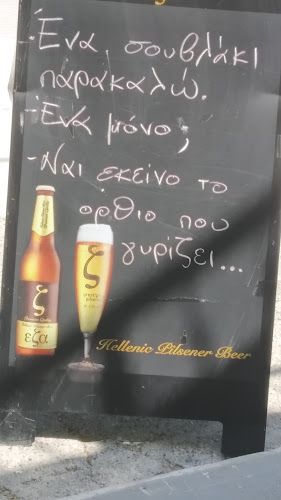 -Ένα σουβλάκι
παρακαλώ.
-Ένα μόνο;
-Ναι εκείνο το
όρθιο που
γυρίζει...
ζ
ζ
εζα
Hellenic Pilsener Beer